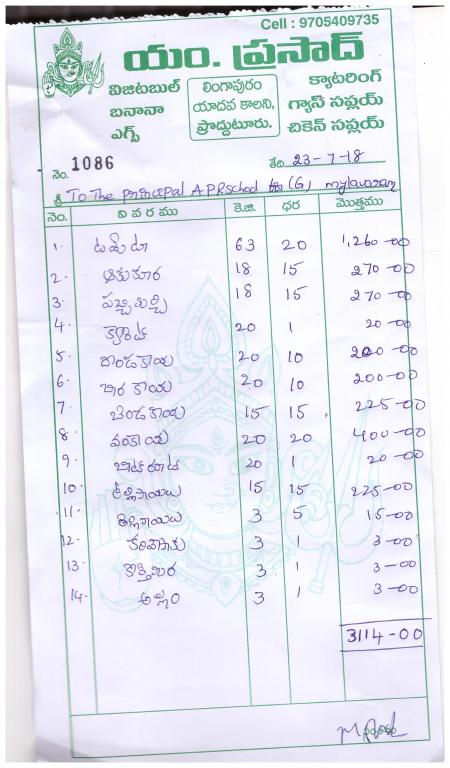 Cell : 9705409735
యం. ప్రసాద్
విజిటబుల్ లింగాపురం క్యాటరింగ్
బనానా యాదవ కాలని, గ్యాస్ సప్లయ్
ఎగ్స్ ప్రొద్దుటూరు. చికెన్ సప్లయ్
నెం. 1086 తేది 23-7-18
శ్రీ To The principal A.P.R School (G) mylavaram
నెం. వివరము కె.జి. ధర మొత్తము
1. టమోటా 63 20 1,260-00
2. ఆకుకూర 18 15 270-00
3. పచ్చిమిర్చి 18 15 270-00
4. క్యారెట్ 20 1 20-00
5. దొండకాయ 20 10 200-00
6. బీరకాయ 20 10 200-00
7. బెండకాయ 15 15 225-00
8. వంకాయ 20 20 400-00
9. బీట్రూట్ 20 1 20-00
10. 15 15 225-00
11. 3 5 15-00
12. కరివేపాకు 3 1 3-00
13. కొత్తిమిర 3 1 3-00
14. అల్లం 3 1 3-00
3114-00